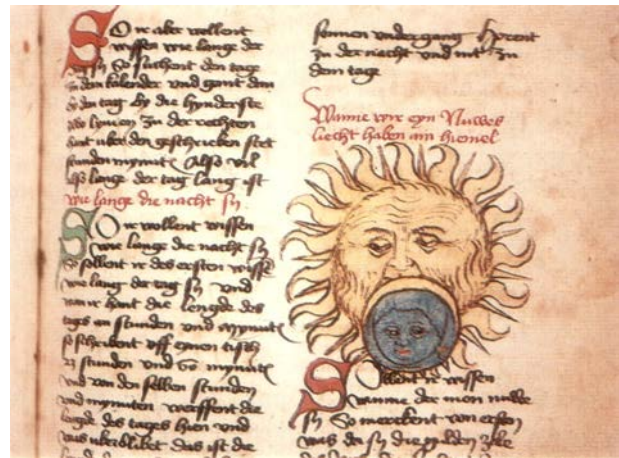 So ir aber wollent
wissen wie lange der
tag sy So suchent den tage
in dem kalender vnd gant dem
by den tag by die hynderste
zwo lynien zu der rechten
hant uber den geschrieben stet
stunden mynut Also vil
also lange der tag lang ist
wie lange die nacht sy
So ir wollent wissen
wie lange die nacht sy
So sollent ir des ersten wissē
wie lang der tag sy vnd
wan ir hant die lengde des
tages an stunden vnd mynut
so schribent vff einen tisch
stunden vnd mynut
vnd von den selben stunden
vnd mynuten werffent die
lengde des tages hien vnd
was uberblibet das ist die
sonnen vndergang horent
zu der nacht vnd nit zu
dem tage
Wanne wir eyn Nuwes
liecht haben am hiemel
Sollent ir wissen
wanne der mon nuwe
sy So merckent von ersten
was da sy die gulden zale